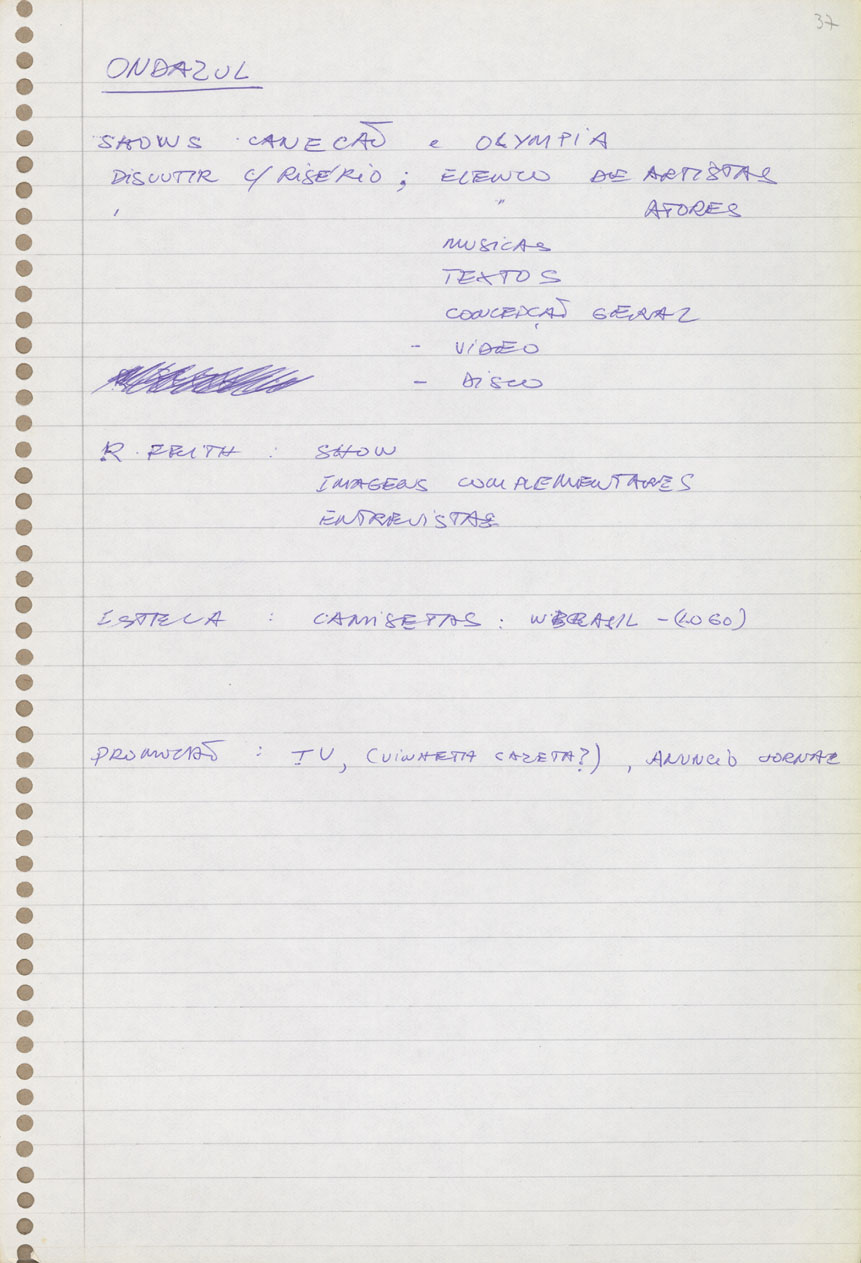 37
ONDAZUL
SHOWS CANECÃO e OLYMPIA
DISCUTIR C/ RISÉRIO ; ELENCO DE ARTISTAS
" ATORES
MUSICAS
TEXTOS
CONCEPÇÃO GERAL
- VIDEO
- DISCO
R. FEITH : SHOW
IMAGENS COMPLEMENTARES
ENTREVISTAS
ESTELA : CAMISETAS : W/BRASIL - (LOGO)
PROMOÇÃO : TV, (VINHETA GAZETA?), ANUNCIO JORNAL